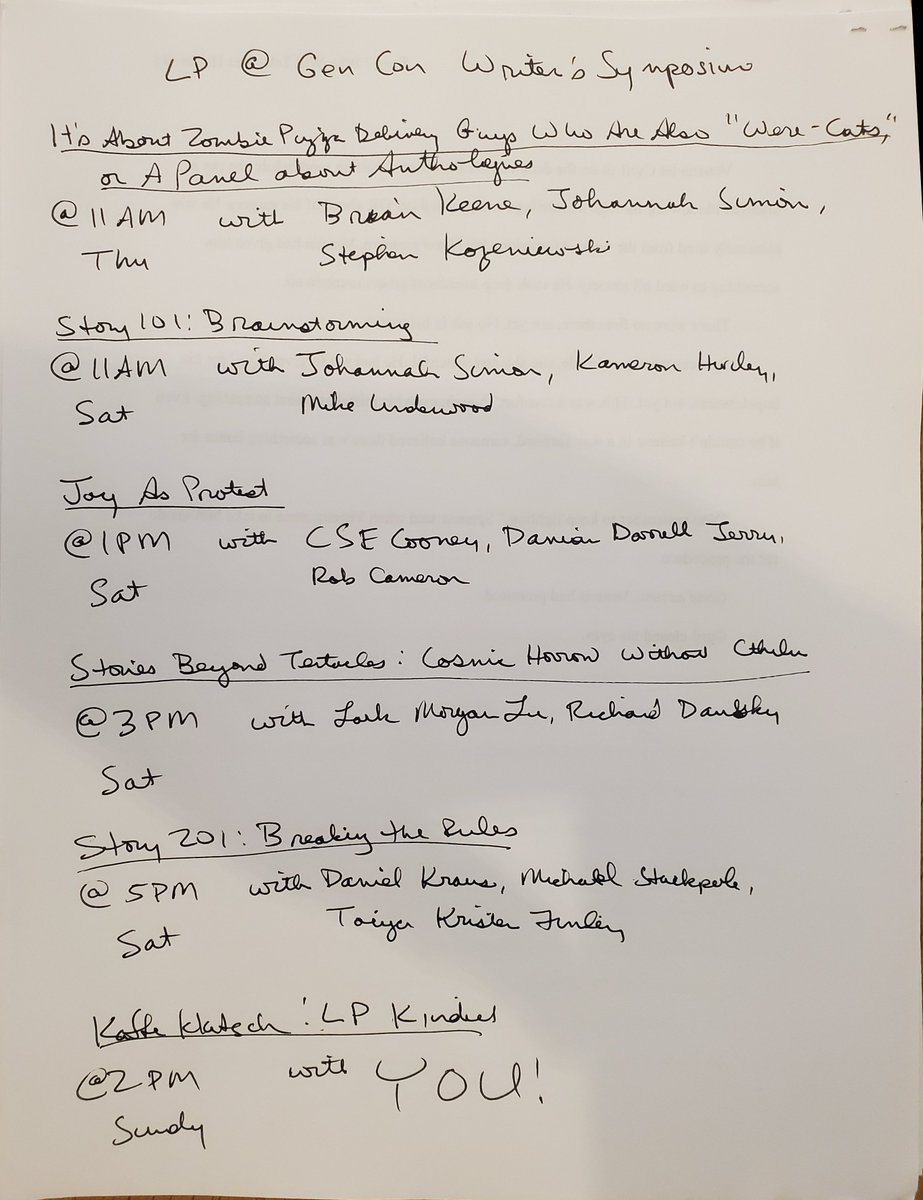 LP @ Gen Con Writer's Symposium
It's About Zombie Pizza Delivery Guys Who Are Also "Were-Cats,"
or A Panel about Anthologies
@ 11 AM with Brian Keene, Johannah Simon,
Thu Stephen Kozeniewski
Story 101: Brainstorming
@ 11AM with Johannah Simon, Kameron Hurley,
Sat Mike Underwood
Joy As Protest
@ 1PM with CSE Cooney, Damian Dorrell Jerry,
Sat Rob Cameron
Stories Beyond Tentacles: Cosmic Horror Without Cthulu
@ 3PM with Lark Morgan Lu, Richard Dansky
Sat
Story 201: Breaking the Rules
@ 5PM with Daniel Kraus, Michael Stackpole,
Sat Taiyo Kristen Finley
Kaffe Klatsch: LP Kindred
@2PM with YOU!
Sundy